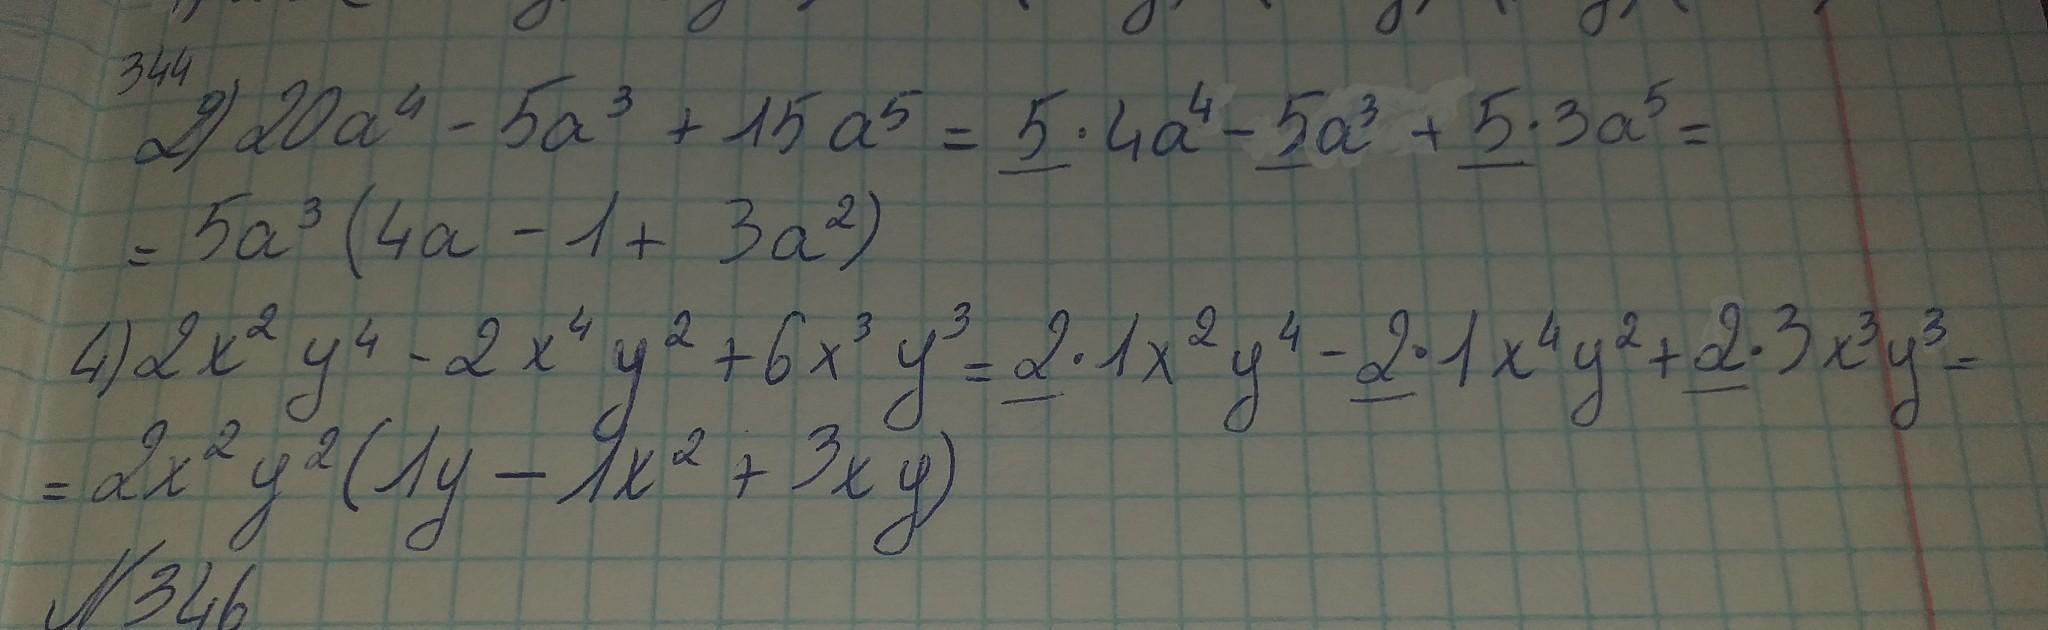 344
2) 20a⁴ - 5a³ + 15a⁵ = 5·4a⁴ - 5a³ + 5·3a⁵ =
= 5a³ (4a - 1 + 3a²)
4) 2x² y⁴ - 2x⁴ y² + 6x³ y³ = 2·1x² y⁴ - 2·1x⁴y² + 2·3x³y³ =
= 2x² y² (1y - 1x² + 3xy)
№346